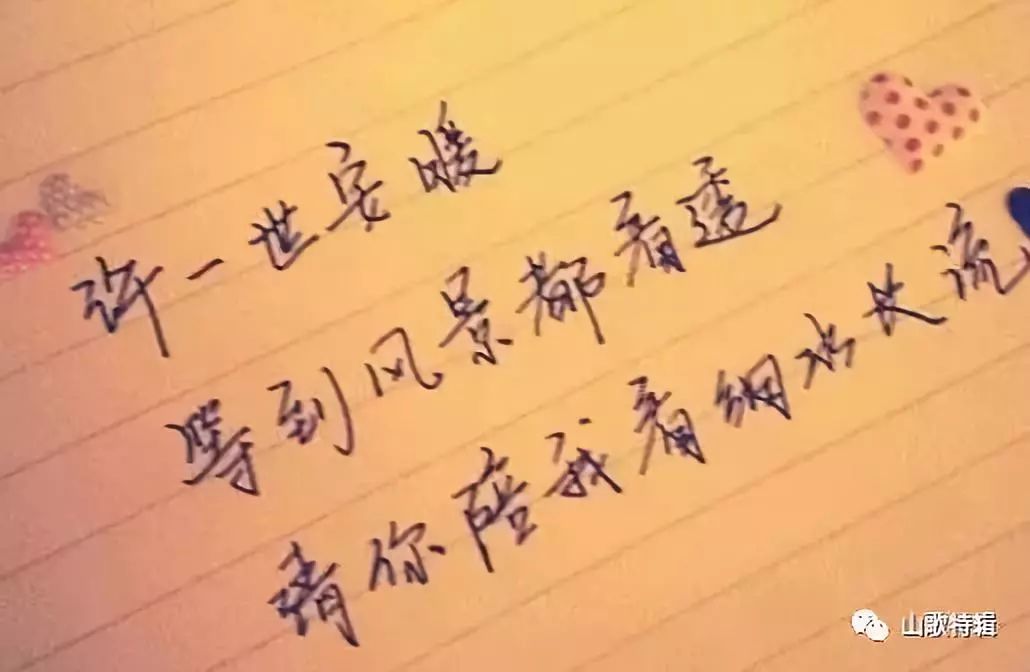 许一世安暖
等到风景都看透
请你陪我看细水长流
山歌特辑